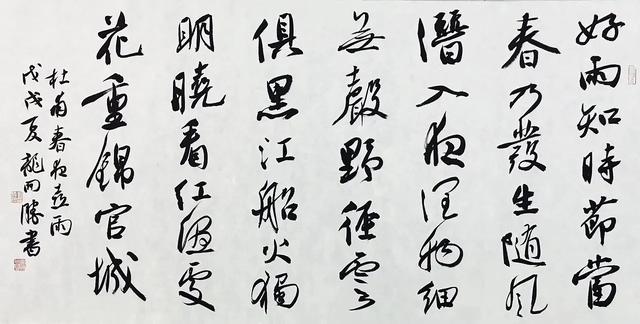 好雨知時節當
春乃發生随風
潛入夜润物細
無聲野徑雲
俱黑江船火獨
明曉看红濕處
花重錦官城
杜甫春夜喜雨
戊戌夏龍勝書